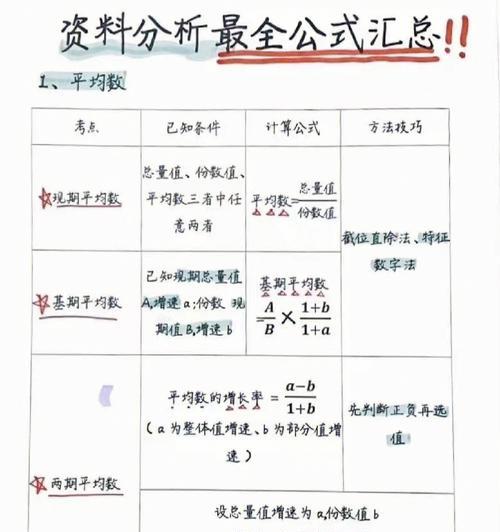 资料分析最全公式汇总!!
1、平均数
考点 已知条件 计算公式 方法技巧
☆现期平均数
总量值、份数值、
平均数三者中任
意两者
平均数=总量值/份数值
截位直除法、特征
数字法
☆基期平均数
已知现期总量值
A,增速a;份数 现
期值B,增速b
基期平均数
=A/B×(1+b)/(1+a)
☆两期平均数
平均数的增长率=(a-b)/(1+b)
(a为整体值增速、b为部分值增
速)
先判断正负再选
值
设总量值增速为a,份数值b